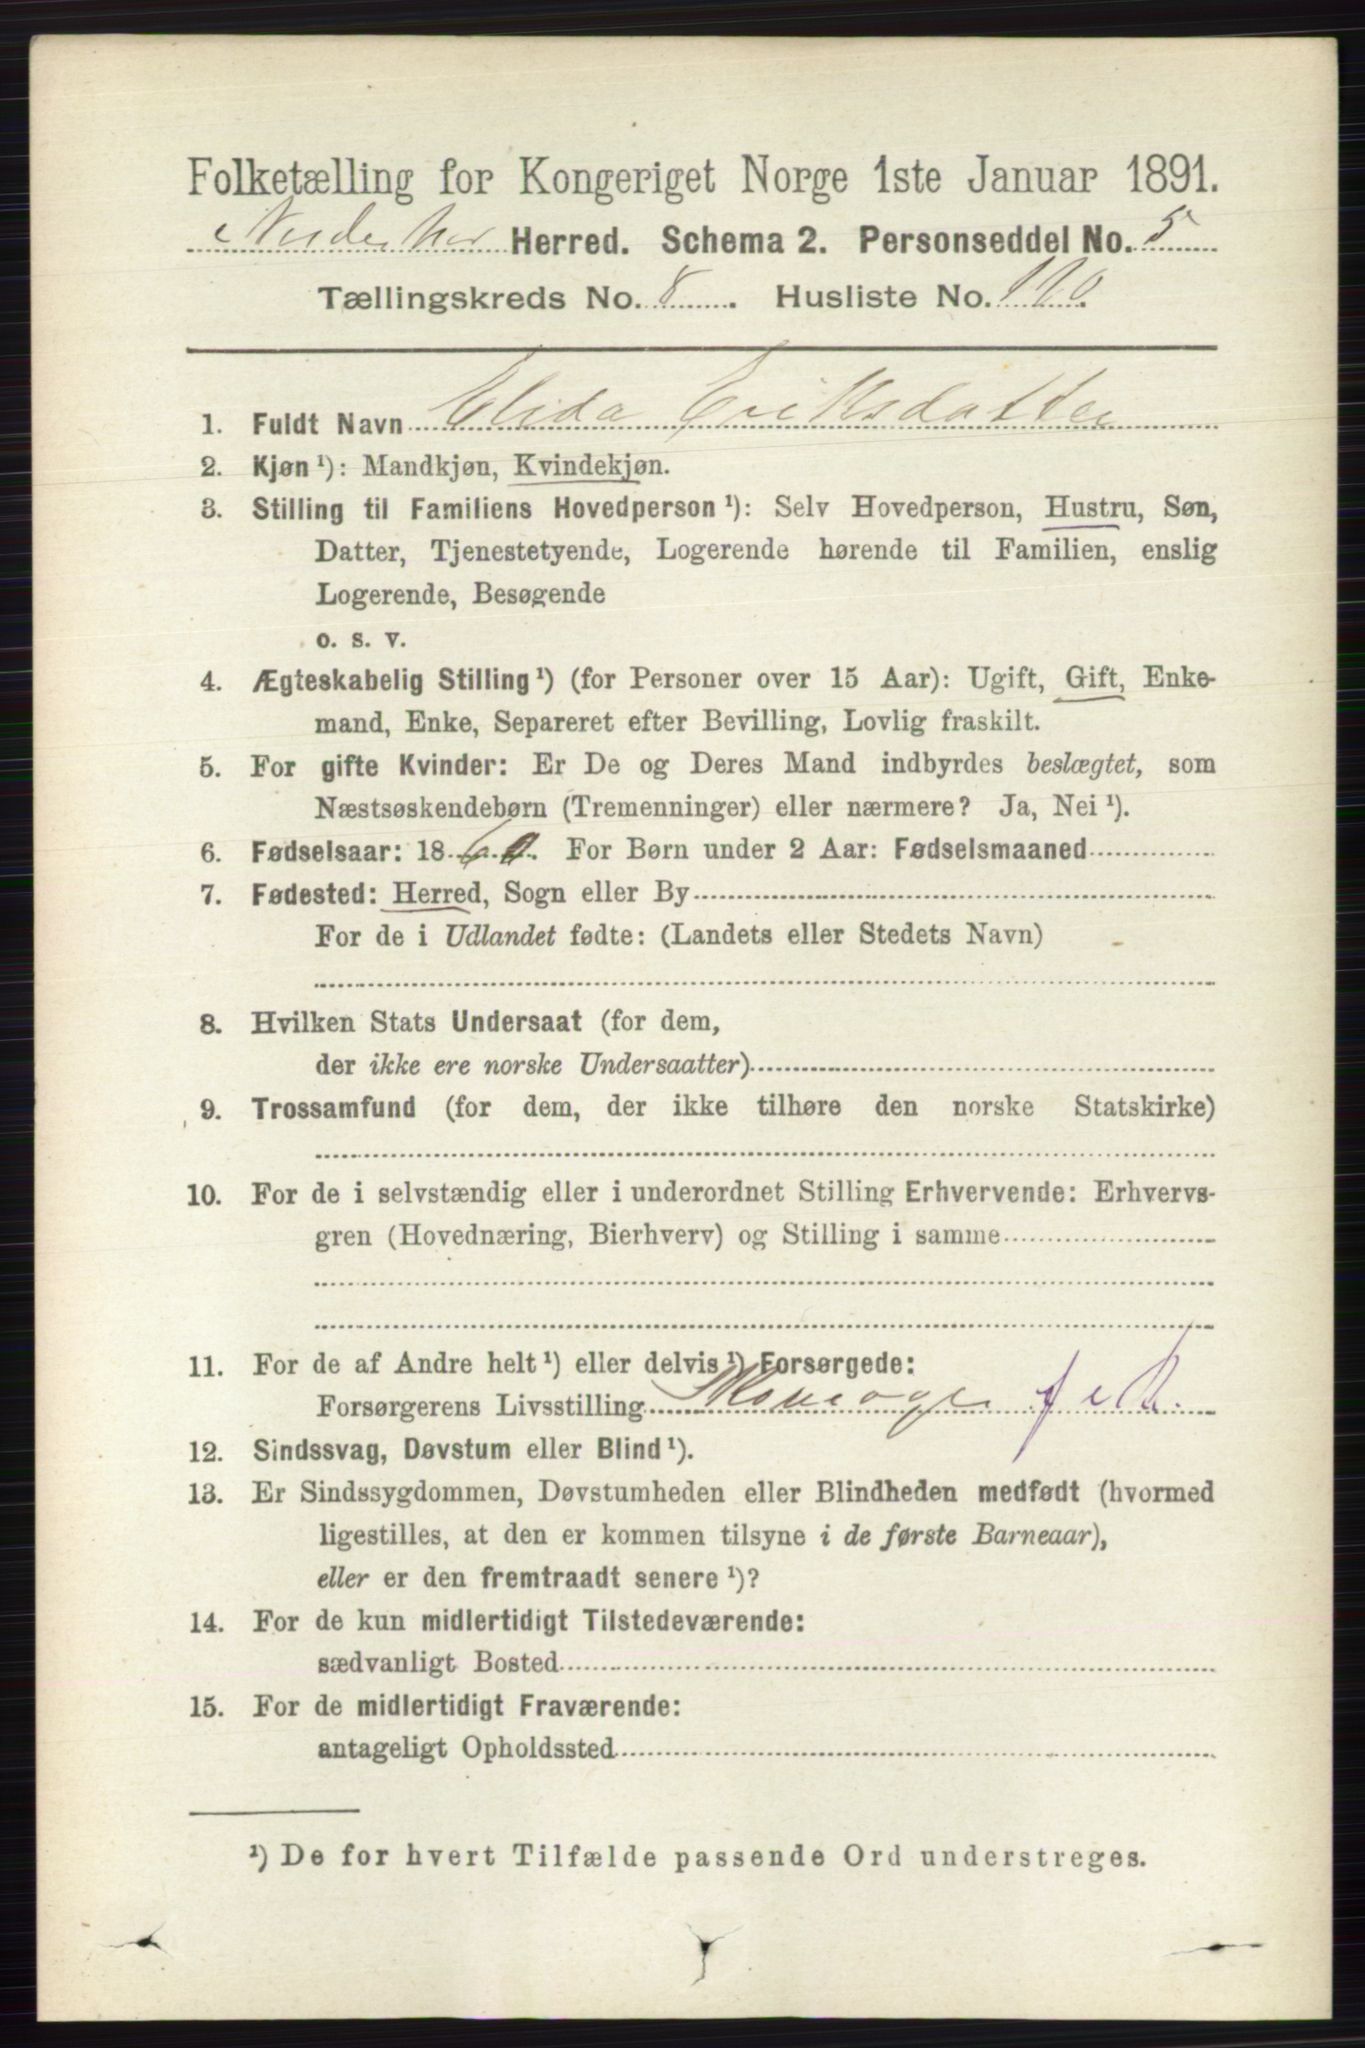 Folketælling for Kongeriget Norge 1ste Januar 1891.
Norderhov Herred. Schema 2. Personseddel No. 5
Tællingskreds No. 8. Husliste No. 120.
1. Fuldt Navn Elida Eriksdatter
2. Kjøn ¹): Mandkjøn, Kvindekjøn.
3. Stilling til Familiens Hovedperson ¹): Selv Hovedperson, Hustru, Søn,
Datter, Tjenestetyende, Logerende hørende til Familien, enslig
Logerende, Besøgende
o. s. v.
4. Ægteskabelig Stilling ¹) (for Personer over 15 Aar): Ugift, Gift, Enke-
mand, Enke, Separeret efter Bevilling, Lovlig fraskilt.
5. For gifte Kvinder: Er De og Deres Mand indbyrdes beslægtet, som
Næstsøskendebørn (Tremenninger) eller nærmere? Ja, Nei ¹).
6. Fødselsaar: 18 60. For Børn under 2 Aar: Fødselsmaaned
7. Fødested: Herred, Sogn eller By
For de i Udlandet fødte: (Landets eller Stedets Navn)
8. Hvilken Stats Undersaat (for dem,
der ikke ere norske Undersaatter)
9. Trossamfund (for dem, der ikke tilhøre den norske Statskirke)
10. For de i selvstændig eller i underordnet Stilling Erhvervende: Erhvervs-
gren (Hovednæring, Bierhverv) og Stilling i samme
11. For de af Andre helt ¹) eller delvis ¹) Forsørgede:
Forsørgerens Livsstilling
12. Sindssvag, Døvstum eller Blind ¹).
13. Er Sindssygdommen, Døvstumheden eller Blindheden medfødt (hvormed
ligestilles, at den er kommen tilsyne i de første Barneaar),
eller er den fremtraadt senere ¹)?
14. For de kun midlertidigt Tilstedeværende:
sædvanligt Bosted
15. For de midlertidigt Fraværende:
antageligt Opholdssted
¹) De for hvert Tilfælde passende Ord understreges.